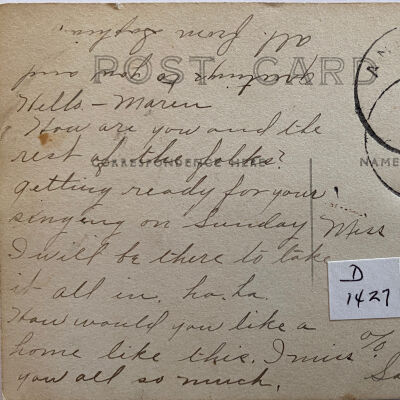 all from Sophia.
Greetings to you and
POST CARD
Hello - Maren
How are you and the
rest of the folks?
CORRESPONDENCE HERE
NAME
getting ready for your
singing on Sunday
Miss
I will be there to take
it all in. ha. ha.
D
1427
How would you like a
home like this. I miss
c/o
you all so much.